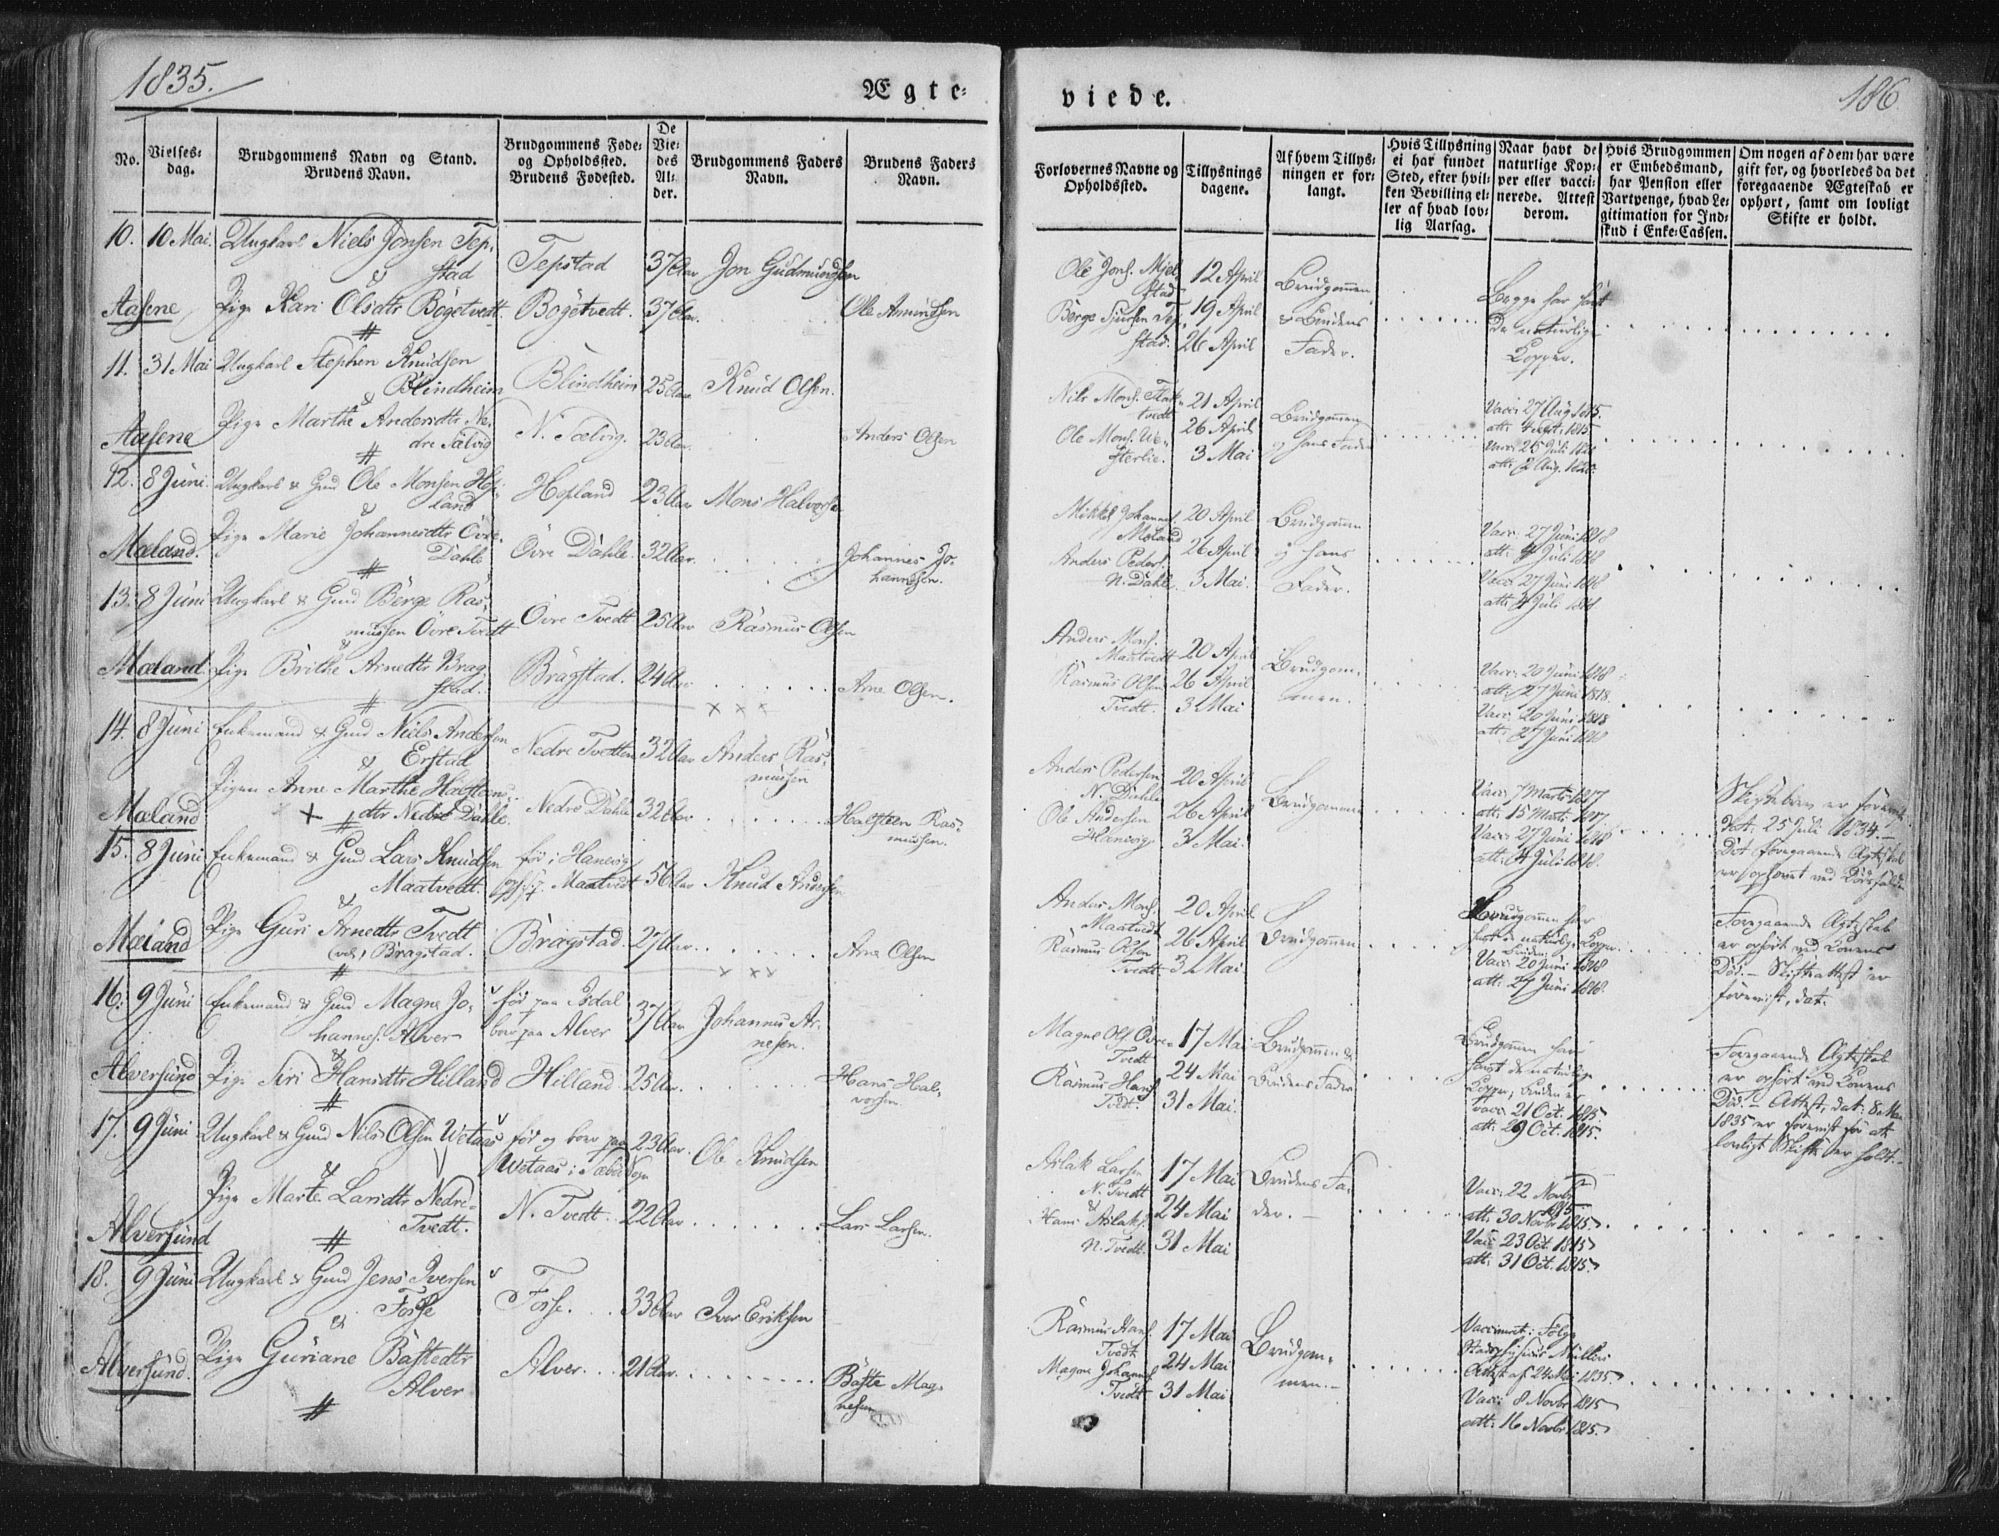 1835.
Ægte-
viede.
186
No.
Vielses-
dag.
Brudgommens Navn og Stand.
Brudens Navn.
Brudgommens Føde-
og Opholdssted.
Brudens Fødested.
De
Vie-
des
Al-
der.
Brudgommens Faders
Navn.
Brudens Faders
Navn.
Forlovernes Navne og
Opholdssted.
Tillysnings
dagene.
Af hvem Tillys-
ningen er for-
langt.
Hvis Tillysning
ei har fundet
Sted, efter hvil-
ken Bevilling el-
ler af hvad lov-
lig Aarsag.
Naar havt de
naturlige Kop-
per eller vacci-
nerede. Attest
derom.
Hvis Brudgommen
er Embedsmand,
har Pension eller
Vartpenge, hvad Le-
gitimation for Ind-
skud i Enke-Cassen.
Om nogen af dem har være
gift for, og hvorledes da det
foregaaende Ægteskab er
ophørt, samt om lovligt
Skifte er holdt.
10. 10 Mai. Ungkarl Niels Jonsen Tep-
stad
Tepstad 37 Aar Jon Gudmundsen
&
Aasene, Pige Kari Olsdtr Bögetvedt. Bögetvedt. 37 Aar. Ole Amundsen
Ole Jons. Mjel-
stad
Börge Sjursen Tep-
stad.
12 April
19 April
26 April
Brudgommen
& Brudens
Fader.
Begge har havt
de naturlige
Kopper.
11. 31 Mai Ungkarl Stephen Knudsen
Blindheim
Blindheim 25 Aar Knud Olsen.
&
Aasene Pige Marthe Andersdtr Ne-
dre Tælvig
N. Tælvig. 23 Aar. Anders Olsen
Nils Mons.
Ole Mons.
21 April
26 April
3 Mai
Brudgommen
og hans Fader
Vacc: 27 Aug 1815.
att: 1815
Vacc: 25 Juli 1820
att: 2 Aug. 1820.
12. 8 Juni. Ungkarl & Gmd Ole Monsen Hop-
land
Hopland 23 Aar Mons Halvorsen
&
Mæland. Pige Marie Johannesdtr Övre
Dahle
Övre Dahle. 32 Aar. Johannes Jo-
hannesen.
Mikkel Johannes.
Mæland
Anders Peders.
N. Dahle
20 April
26 April
3 Mai.
Brudgommen
og hans
Fader.
Vacc: 27 Juni 1818
att: 4 Juli 1818
Vacc: 27 Juni 1818
att: 4 Juli 1818
13. 8 Juni Ungkarl & Gmd Börge Ras-
mussen Övre Tvedt
Övre Tvedt 25 Aar Rasmus Olsen
&
Mæland. Pige Brithe Arnedtr Brag-
stad.
Bragstad. 24 Aar Arne Olsen.
Anders Mons.
Maatvedt
Rasmus Olsen
Tvedt.
20 April
26 April
3 Mai
Brudgom-
men.
Vacc: 20 Juni 1818
att: 27 Juni 1818.
Vacc: 20 Juni 1818
att: 27 Juni 1818
14. 8 Juni Enkemand & Gmd Niels Andersen
Erstad
Nedre Tvedten 32 Aar Anders Ras-
mussen
&
Mæland Pigen Anne Marthe Halsteens-
dtr Nedre Dahle.
Nedre Dahle 32 Aar. Halsteen Ras-
mussen.
Anders Pedersen
N. Dahle
Ole Andersen
Hanevig
20 April
26 April
3 Mai.
Brudgommen
Vacc: 7 Marts 1817
att: 15 Marts 1817.
Vacc: 27 Juni 1818
att: 4 Juli 1818.
Skiftebrev er forevist,
dat: 25 Juli 1834.-
Det foregaaende Ægteskab
er ophørt ved Dödsfald
15. 8 Juni Enkemand & Gmd Lars Knudsen
Maatvedt.
föd i Hanevig
Maatvedt 56 Aar Knud Andersen
&
Mæland Pige Guri Arnedtr Tvedt
Bragstad.
Bragstad. 27 Aar. Arne Olsen
Anders Mons.
Maatvedt
Rasmus Olsen
Tvedt
20 April
26 April
3 Mai
Brudgommen
Brudgommen har
havt de naturlige Kopper.
Bruden:
Vacc: 20 Juni 1818
att: 27 Juni 1818.
Foregaaende Ægteskab
er ophørt ved Konens
Död.- Skifteattest er
forevist, dat.
16. 9 Juni Enkemand & Gmd Magne Jo-
hannes. Alver
föd paa Isdal
boer paa Alver 37 Aar Johannes Ar-
nesen.
&
Alversund Pige Siri Hansdtr Hilland Hilland 25 Aar. Hans Hal-
vorsen.
Magne Ols. Övre
Tvedt
Rasmus Hans.
Tvedt.
17 Mai
24 Mai
31 Mai.
Brudgommen &
Brudens Fader
Brudgommen har
havt de naturlige
Kopper, Bruden er
vacc: 21 Oct. 1815
att: 29 Oct. 1815.
Foregaaende Ægteskab
er ophørt ved Konens
Död.- Attest, dat: 8 Mai
1835 er forevist for at
lovligt Skifte er holdt.-
17. 9 Juni Ungkarl & Gmd Nils Olsen Wetaas föd og boer paa
Wetaas i Sæbö Sogn 23 Aar. Ole Knudsen
&
Alversund Pige Marte Larsdtr Nedre
Tvedt.
N. Tvedt. 22 Aar. Lars Larsen.
Aslak Larsen
N. Tvedt
&
Hans Aslaks.
N. Tvedt.
17 Mai
24 Mai
31 Mai
Brudens Fa-
der.-
Vacc: 22 Novbr
1815
att: 30 Novbr 1815
Vacc: 23 Oct. 1815
att: 31 Oct. 1815.
18. 9 Juni Ungkarl & Gmd Jens Iversen
Fosse
Fosse. 33 Aar Iver Eriksen
&
Alversund. Pige Guriane Bastedtr
Alver
Alver. 21 Aar. Baste Mag-
nesen
Rasmus Hans.
Tvedt
Magne Johannes.
Tvedt
17 Mai
24 Mai
31 Mai
Brudgom-
men.-
Vaccineret i Følge
Stadsphysicus Müllers
Attest af 24 Mai 1835.
Vacc: 8 Novbr 1815
att: 16 Novbr 1815.